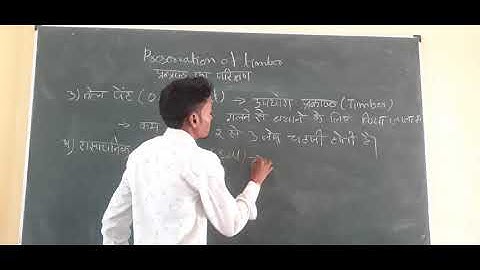 Preservation of timber
प्रकाष्ठ का परिक्षण
3) तेल पेंट (O → इपयोग प्रकाष्ठ (Timber)
गलने से बचाने के लिए किया जाता है
→ कम 2 से 3 लेप चढ़ानी होती है।
4) रासायनिक